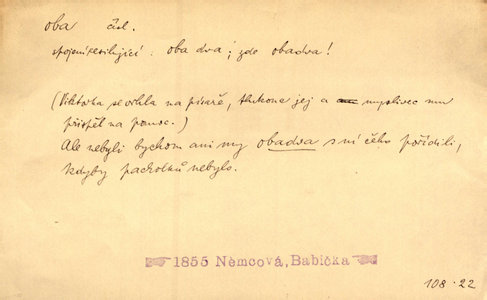 oba čísl.
spojení zesilující: oba dva; zde obadva!
(Viktorka se vrhla na písaře, tlukouc jej a myslivec mu
přispěl na pomoc.)
Ale nebyli bychom ani my obadva s ní čeho pořídili,
kdyby pacholků nebylo.
1855 Němcová, Babička
108·22